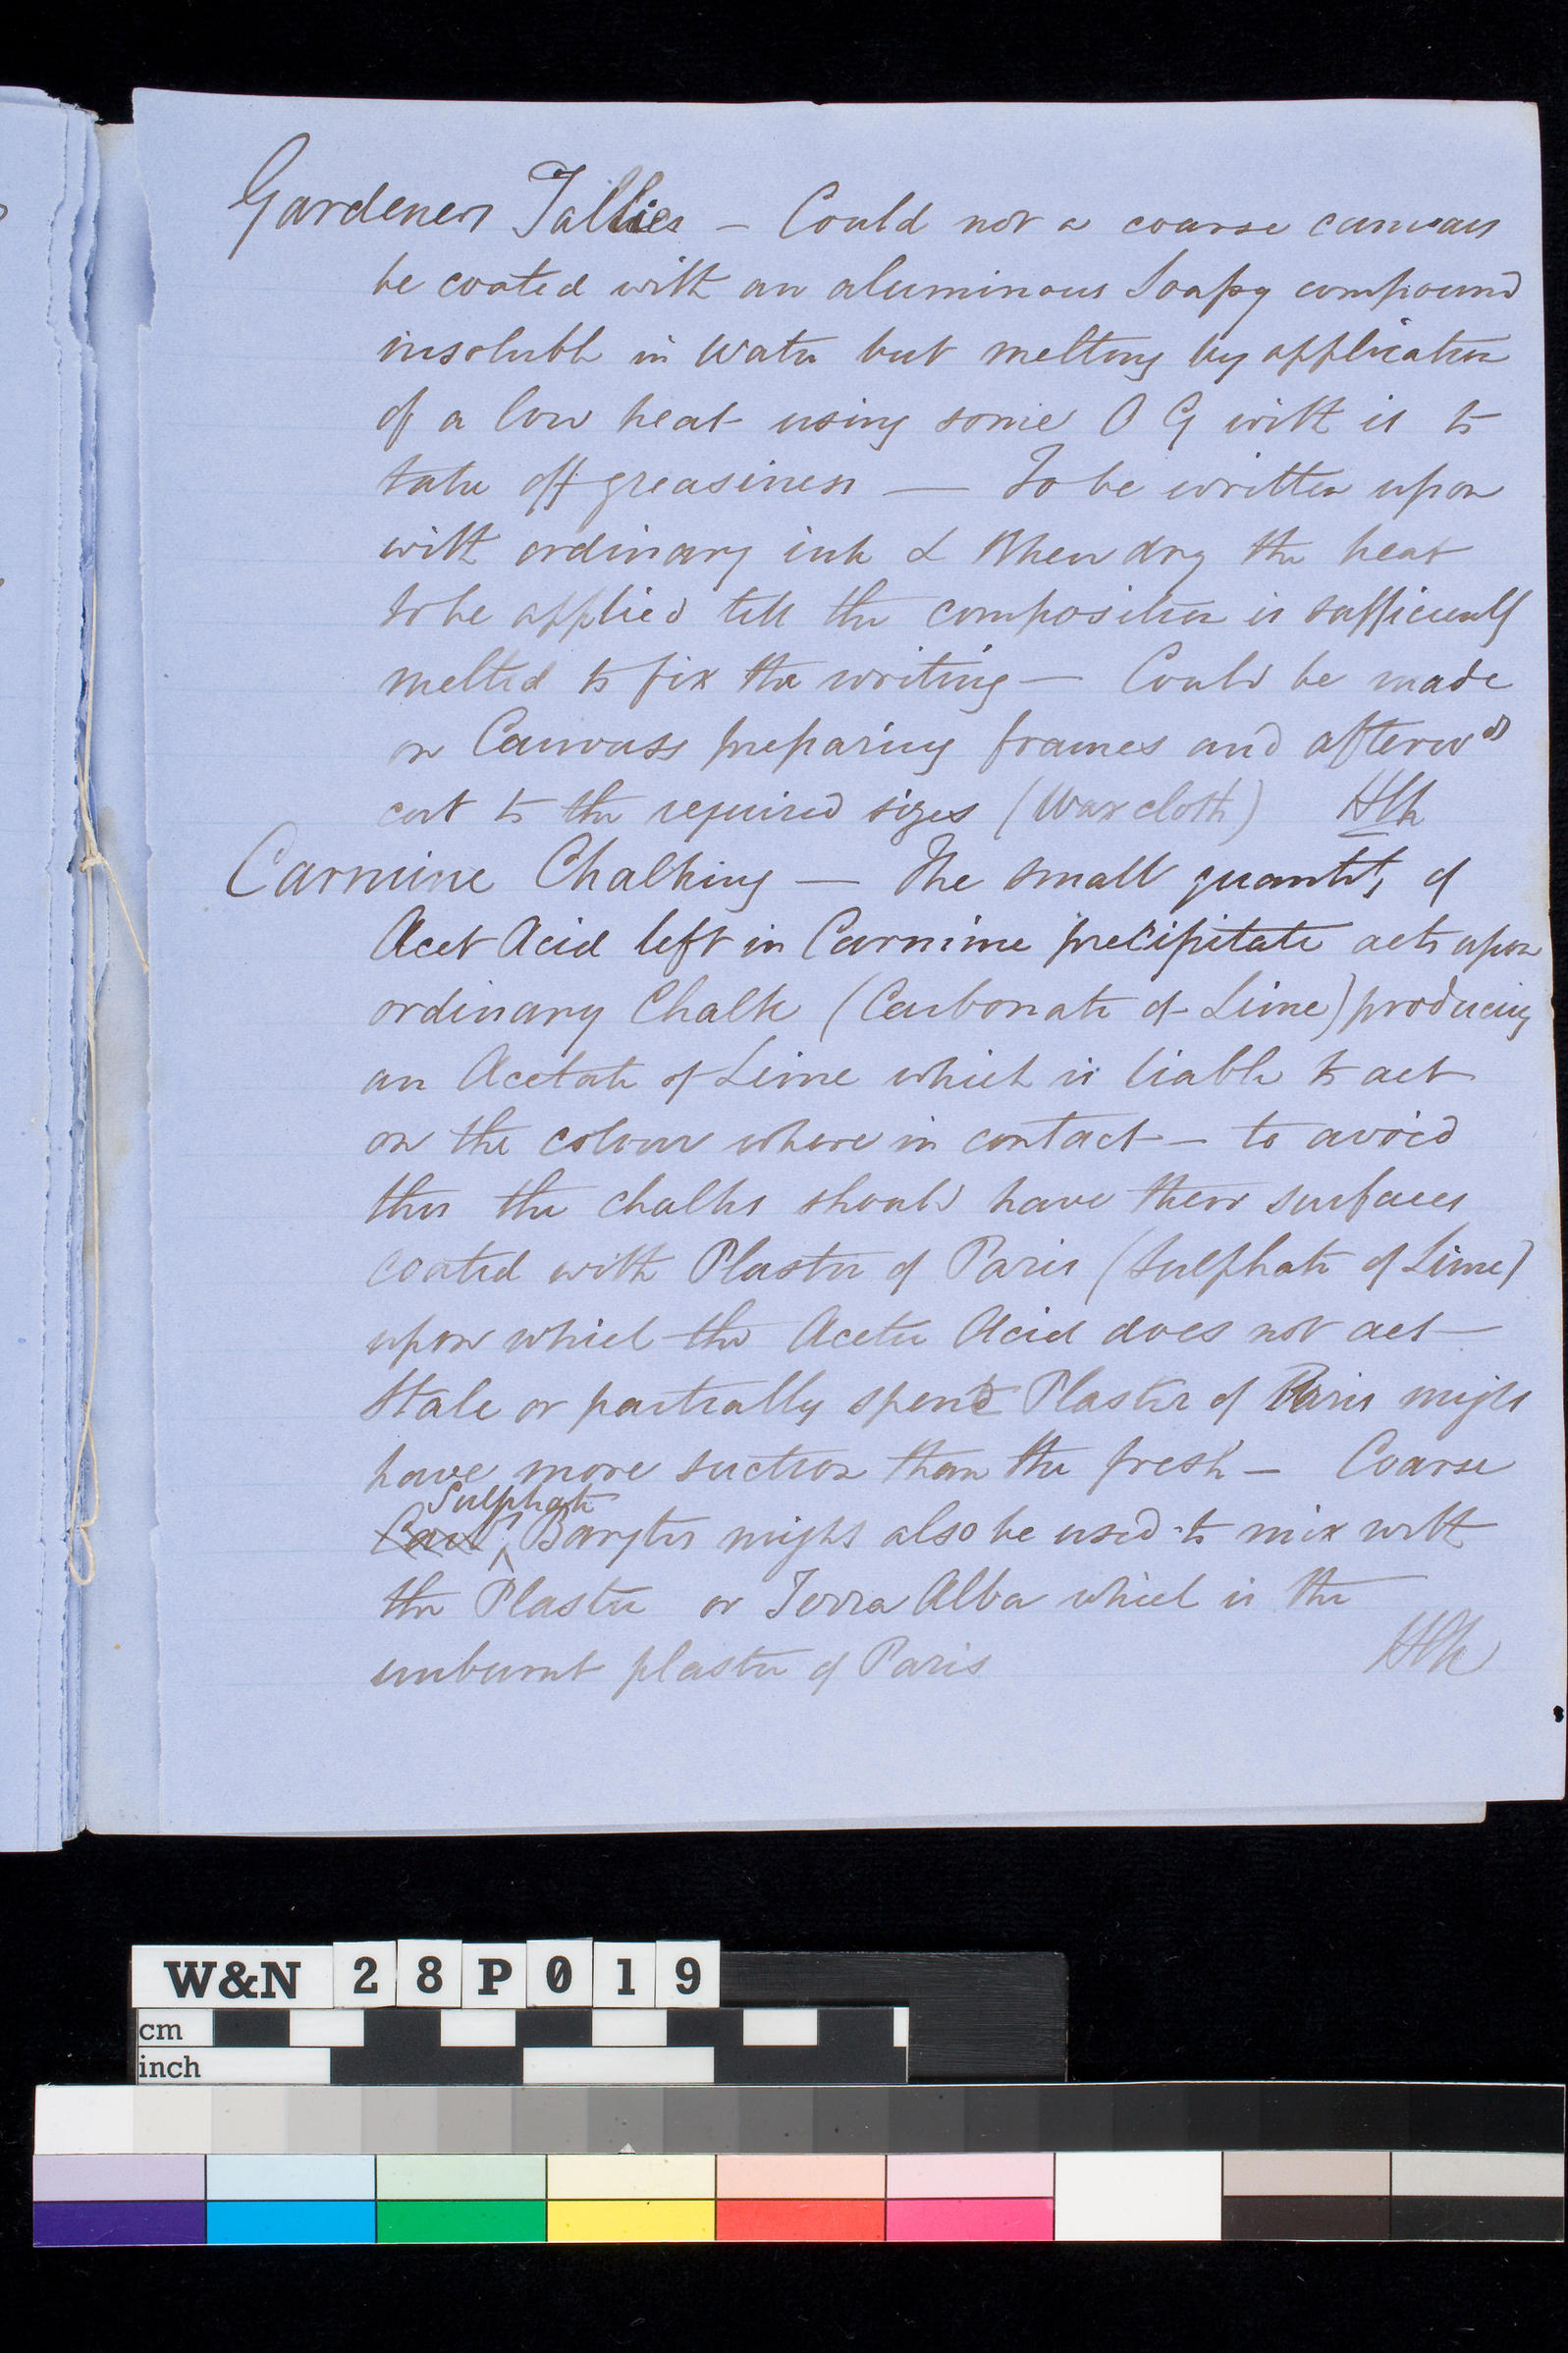 Gardeners Tallies — Could not a coarse canvass
be coated with an aluminous Soapy compound
insoluble in Water but melting by application
of a low heat using some O G with it to
take off greasiness — To be written upon
with ordinary ink & When dry the heat
to be applied till the composition is sufficiently
melted to fix the writing — Could be made
on Canvass preparing frames and afterwds
cut to the required sizes (Wax cloth)
Carmine Chalking — The small quantity of
Acet Acid left in Carmine precipitate acts upon
ordinary Chalk (Carbonate of Lime) producing
an Acetate of Lime which is liable to act
on the colour where in contact — to avoid
this the chalks should have their surfaces
coated with Plaster of Paris (Sulphate of Lime)
upon which the Acetic Acid does not act —
Stale or partially spent Plaster of Paris might
have more suction than the fresh — Coarse
Sulphate
Carb Barytes might also be used to mix with
the Plaster or Terra Alba which is the
unburnt plaster of Paris
W&N 28P019
cm
inch